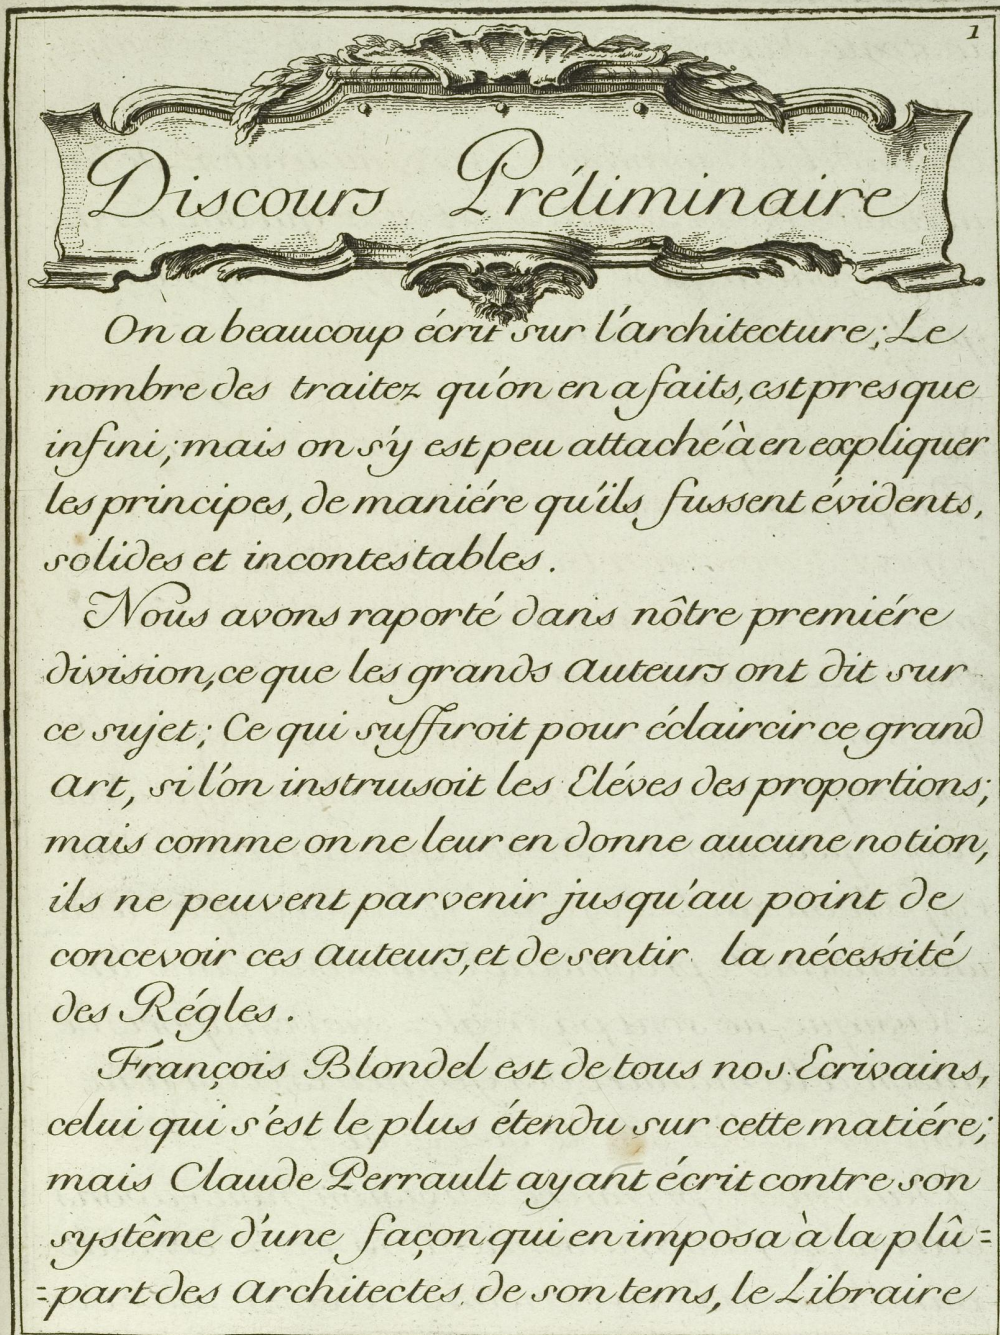 1
Discours Préliminaire
On a beaucoup écrit sur l'architecture; Le
nombre des traitez qu'on en a faits, est presque
infini; mais on s'y est peu attaché à en expliquer
les principes, de maniére qu'ils fussent évidents,
solides et incontestables.
Nous avons raporté dans nôtre premiére
division, ce que les grands Auteurs ont dit sur
ce sujet; Ce qui suffiroit pour éclaircir ce grand
Art, si l'on instruisoit les Eléves des proportions;
mais comme on ne leur en donne aucune notion,
ils ne peuvent parvenir jusqu'au point de
concevoir ces Auteurs, et de sentir la nécessité
des Régles.
François Blondel est de tous nos Ecrivains,
celui qui s'est le plus étendu sur cette matiére;
mais Claude Perrault ayant écrit contre son
systême d'une façon qui en imposa à la plû=
=part des Architectes de son tems, le Libraire